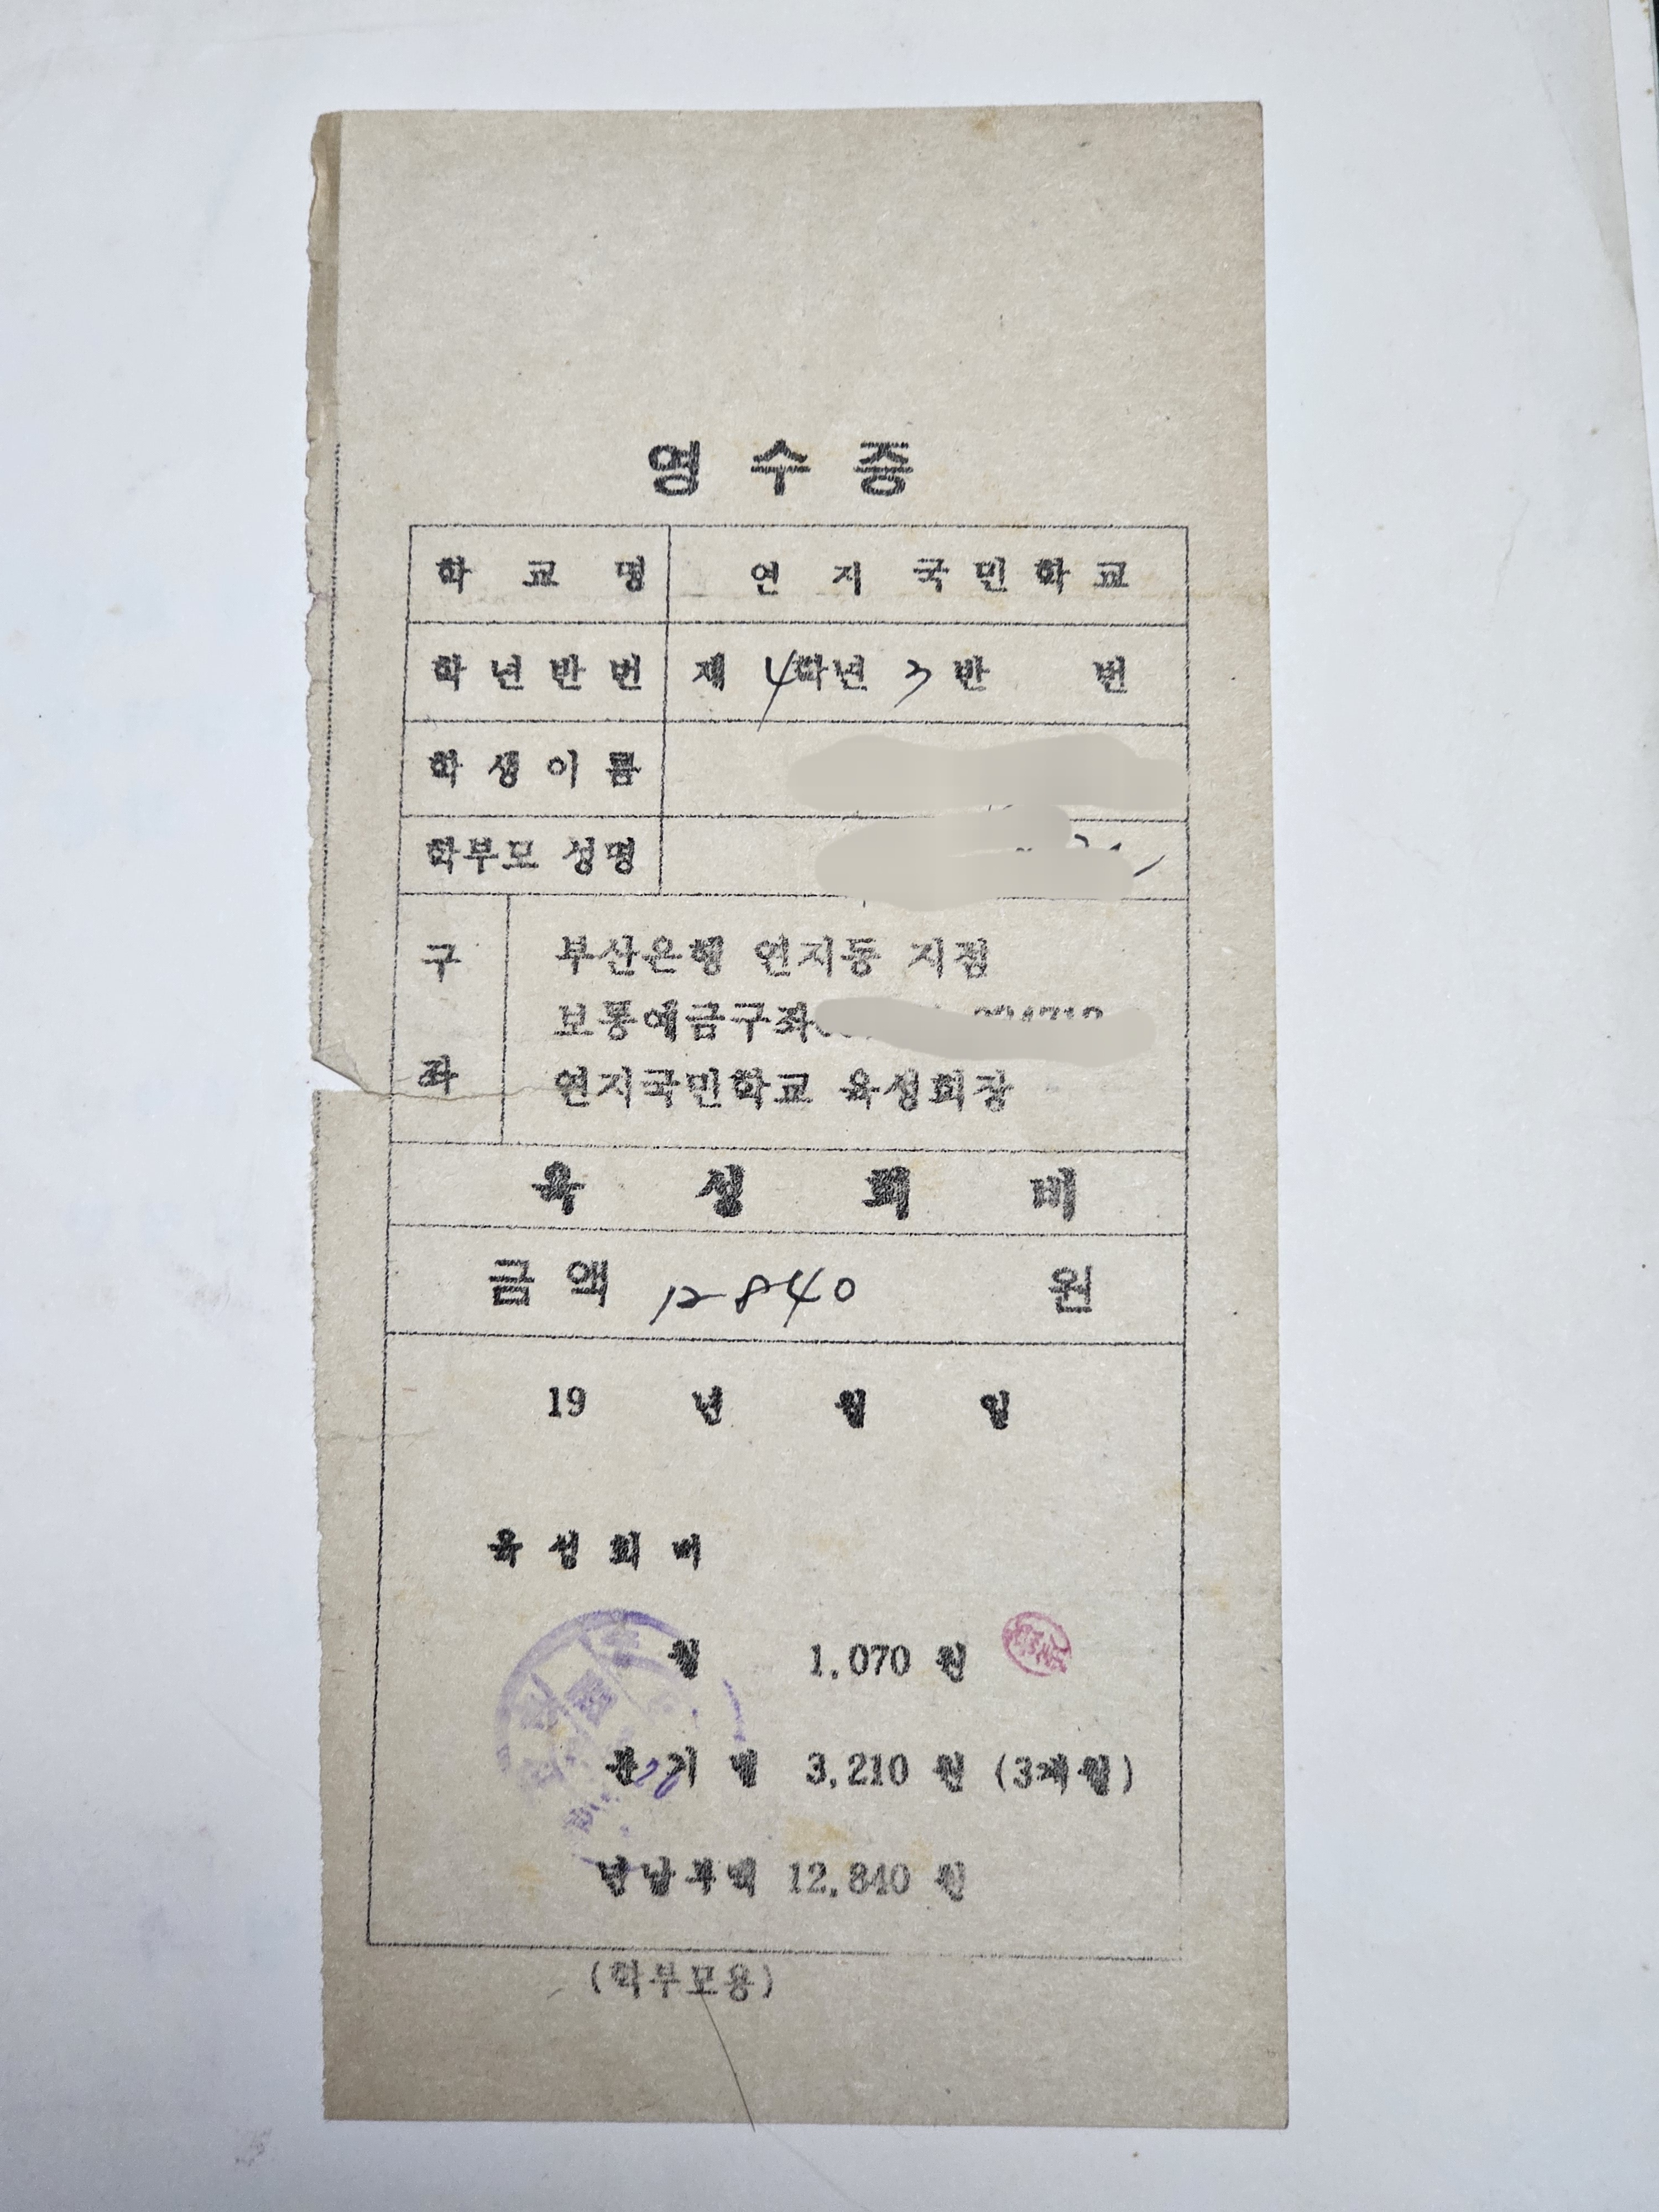 영수증
학교명 연지국민학교
학년반번 제 4학년 3반 번
학생이름
학부모 성명
구좌 부산은행 연지동 지점
보통예금구좌
연지국민학교 육성회장
육성회비
금액 12840 원
19 년 월 일
육성회비
월 1,070 원
분기별 3,210 원 (3개월)
년납부액 12,840 원
(학부모용)